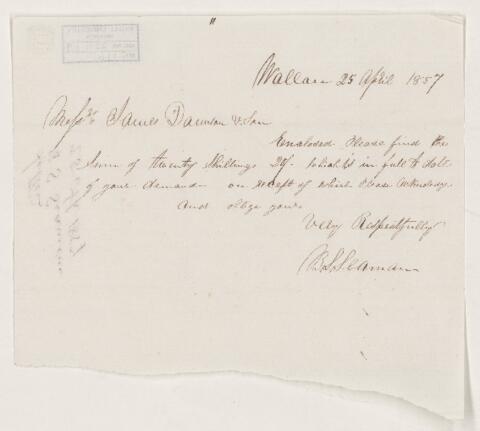 Wallace 25 April 1857
Messrs James Dawson & Son
Enclosed Please find the
Sum of twenty Shillings 20/- which is in full to date
of your demand on receipt of which Please acknowledge
and oblige yours
Very Respectfully
B. S. Seaman